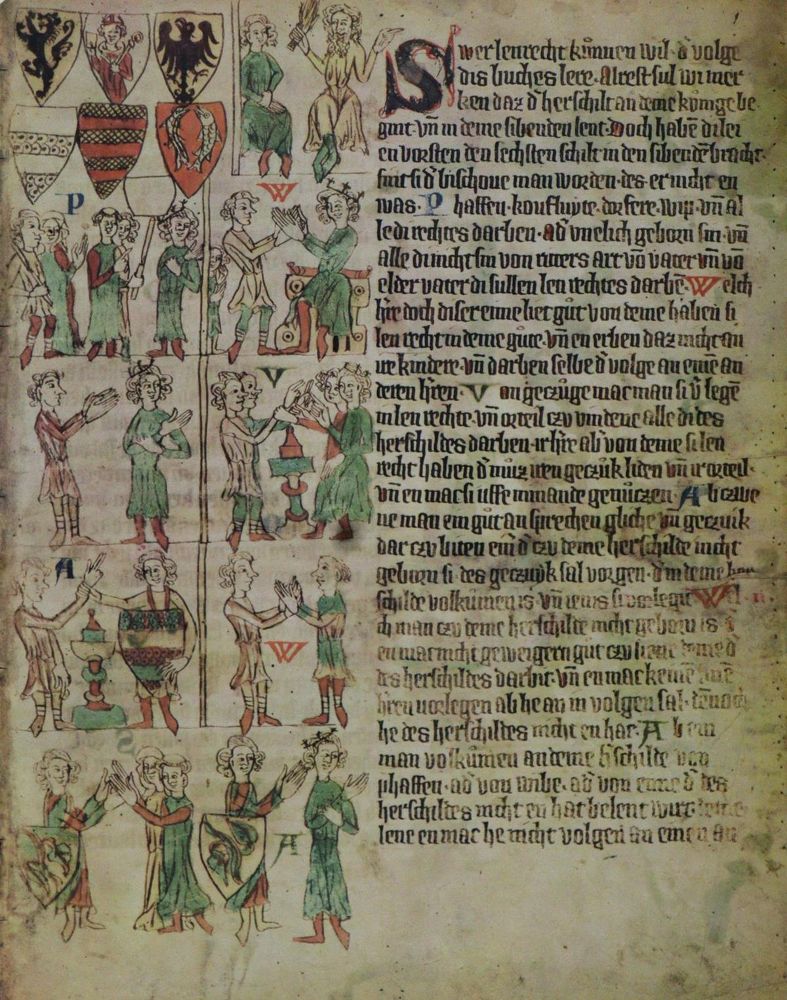 1
Swer lenrecht kunnen wil · d' volge
dis buches lere · Alrest sul wi mer
ken daz d' herschilt an deme kunige be
gint · vn̄ in deme sibenden lent · Doch habē di lei
en vorsten den sechsten schilt in den sibendē bracht ·
sint si d' bischoue man worden · des er nicht en
was · P haffen · koufluyte · dorfere · wip · vn̄ al
le di rechtes darben · ad' vnelich geborn sin · vn̄
alle di nicht sin von ritters art vō vater vn̄ vō
elder vater di sullen len rechtes darbē · Welch
h're doch diser eime liet gut von deme haben si
len recht in deme gute · vn̄ en erben daz nicht an
ire kindere · vn̄ darben selbe d' volge an einē an
deren h'ren · V on geczuge mac man si v'legē
in len rechte · vn̄ orteil czu vindene alle di des
herschildes darben · ir h're ab' von deme si len
recht haben d' muz iren geczuk liden vn̄ ir orteil ·
vn̄ en mac si uffe nimande genuczen · Ab czwe
ne man ein gut an sprechen gliche vn̄ geczuik
dar czu biten ein' d' czu deme herschilde nicht
geborn si · des geczuyk sal vorgen · d' in deme her
schilde volkumen is · vn̄ ienis si vorlegit Wel
ch man czu deme herschilte nicht geborn is
en mac nicht geweigern gut czu liene
des herschildes darbit · vn̄ en mac keinē
h'ren vorlegen ab he an in volgen sal ·
he des herschildes nicht en hat · A b ein
man volkumen an deme h'schilde von
phaffen · ad' von wibe · ad' von eime d' des
herschildes nicht en hat belent wirt
lene en mac he nicht volgen an einen an
P
W
V
A
W
A